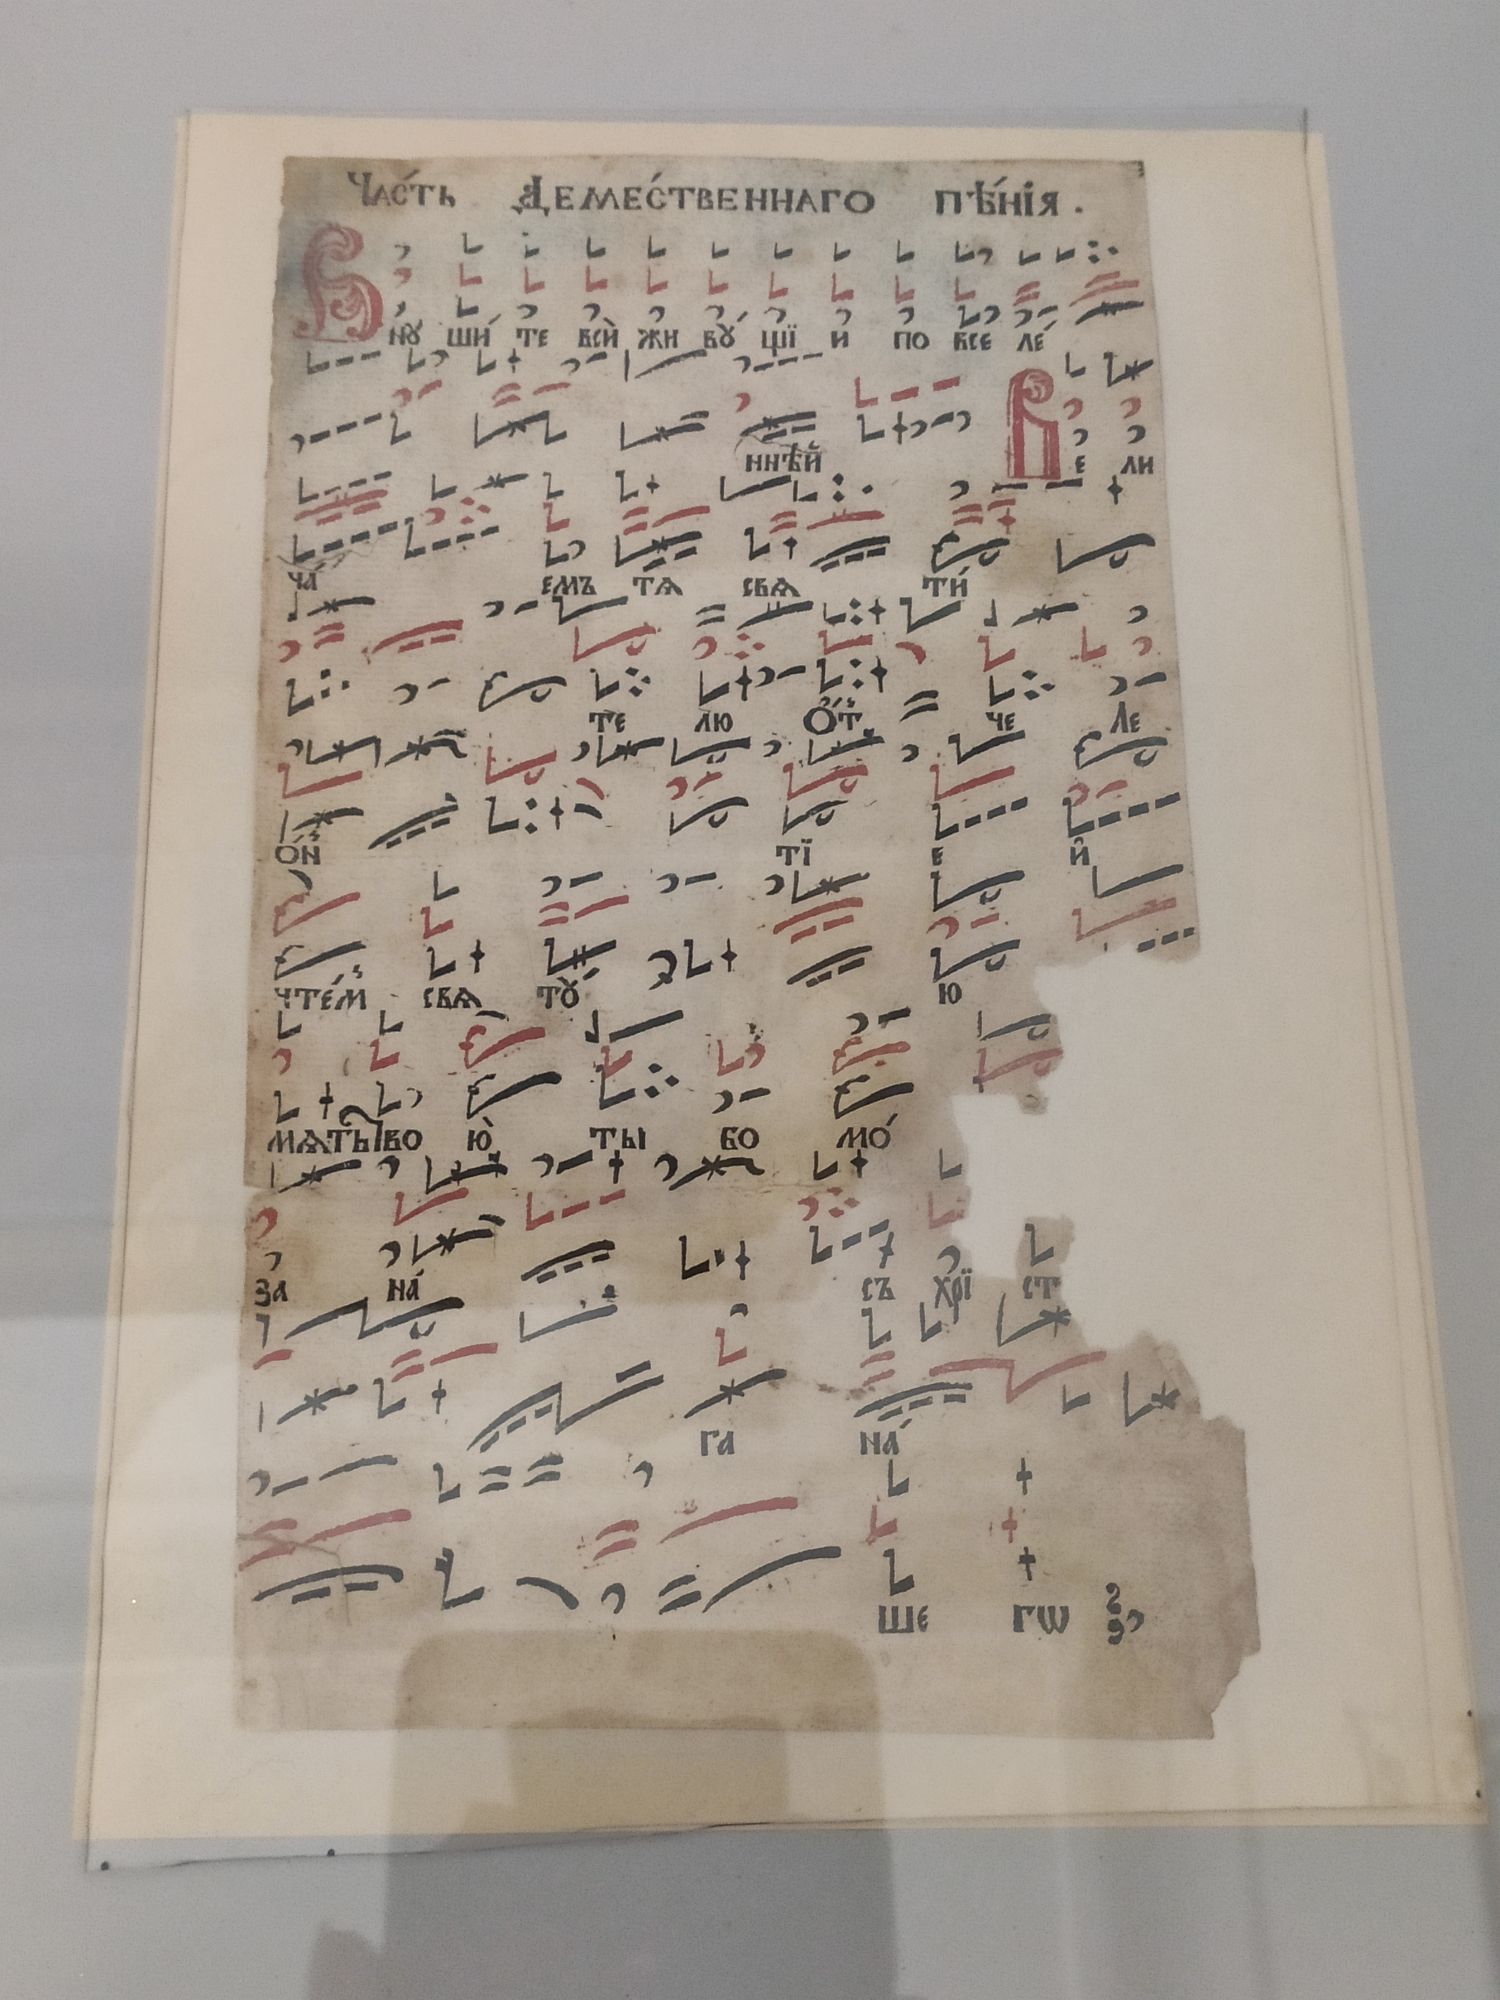 Ча́сть Деме́ственнаго пѣ́нїя.
Вну ши́ те всѝ жи ву́ щїи и по все ле́
ннѣй Ве ли
ча́ емъ тѧ свѧ ти́
те лю о҆т че ле
о́н тї е и҆
чте́м свѧ ту́ ю
мѧть тво ю̀ ты бо мо́
за на́ съ хрї ст
га на́
ше гѡ